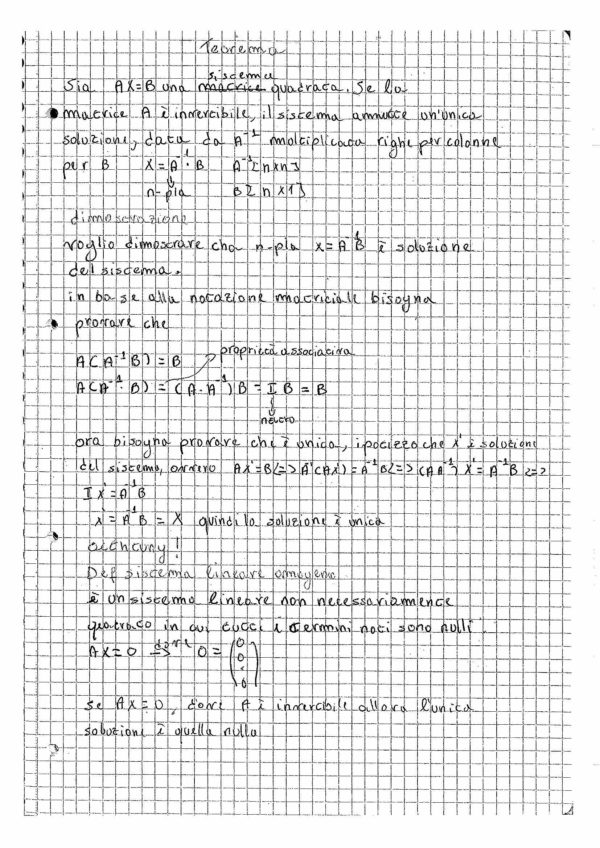 Teorema
sistema
Sia AX=B una matrice quadrata. Se la
matrice A è invertibile, il sistema ammette un'unica
soluzione, data da A⁻¹ moltiplicata righe per colonne
per B X = A⁻¹ · B A⁻¹ [n×n]
n-pla B[n×1]
dimostrazione
voglio dimostrare cha n-pla x=A⁻¹B è soluzione
del sistema.
in base alla notazione matriciale bisogna
provare che
proprietà associativa
A(A⁻¹B) = B
A(A⁻¹·B) = (A·A⁻¹)B = I B = B
neutro
ora bisogna provare che è unica, ipotizzo che x' è soluzione
del sistema, ovvero Ax'=B<=> A'(Ax')=A⁻¹B<=> (AA⁻¹) x'=A⁻¹B <=>
I x'=A⁻¹B
x'=A⁻¹B = X quindi la soluzione è unica
Def sistema lineare omogeneo
è un sistema lineare non necessariamente
quadrato in cui tutti i termini noti sono nulli.
AX=0 dove 0 = (0 0 . 0)
se AX=0, dove A è invertibile allora l'unica
soluzioni è quella nulla